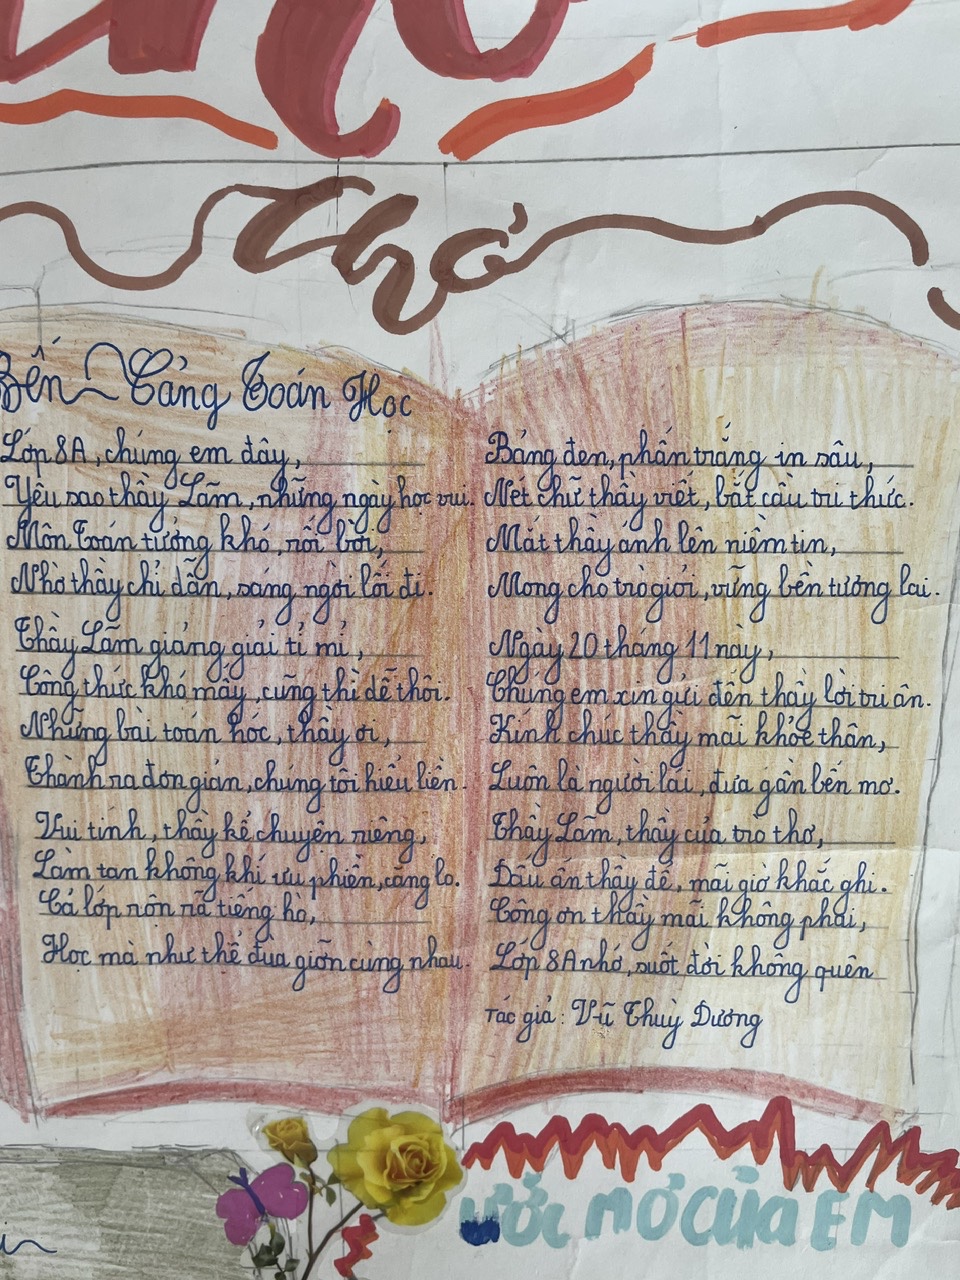 Thơ
Bến Cảng Toán Học
Lớp 8A, chúng em đây,
Yêu sao thầy Lãm, những ngày học vui.
Môn Toán tưởng khó, rối bời,
Nhờ thầy chỉ dẫn, sáng ngời lối đi.
Thầy Lãm giảng giải tỉ mỉ,
Công thức khó mấy, cũng thì dễ thôi.
Những bài toán hóc, thầy ơi,
Thành ra đơn giản, chúng tôi hiểu liền.
Vui tính, thầy kể chuyện riêng,
Làm tan không khí ưu phiền, căng lo.
Cả lớp rộn rã tiếng hò,
Học mà như thể đùa giỡn cùng nhau.
Bảng đen, phấn trắng in sâu,
Nét chữ thầy viết, bắt cầu tri thức.
Mắt thầy ánh lên niềm tin,
Mong cho trò giỏi, vững bền tương lai.
Ngày 20 tháng 11 này,
Chúng em xin gửi đến thầy lời tri ân.
Kính chúc thầy mãi khỏe thân,
Luôn là người lái, đưa gần bến mơ.
Thầy Lãm, thầy của trò thơ,
Dấu ấn thầy để, mãi giờ khắc ghi.
Công ơn thầy mãi không phai,
Lớp 8A nhớ, suốt đời không quên
Tác giả: Vũ Thuỳ Dương
ƯỚC MƠ CỦA EM